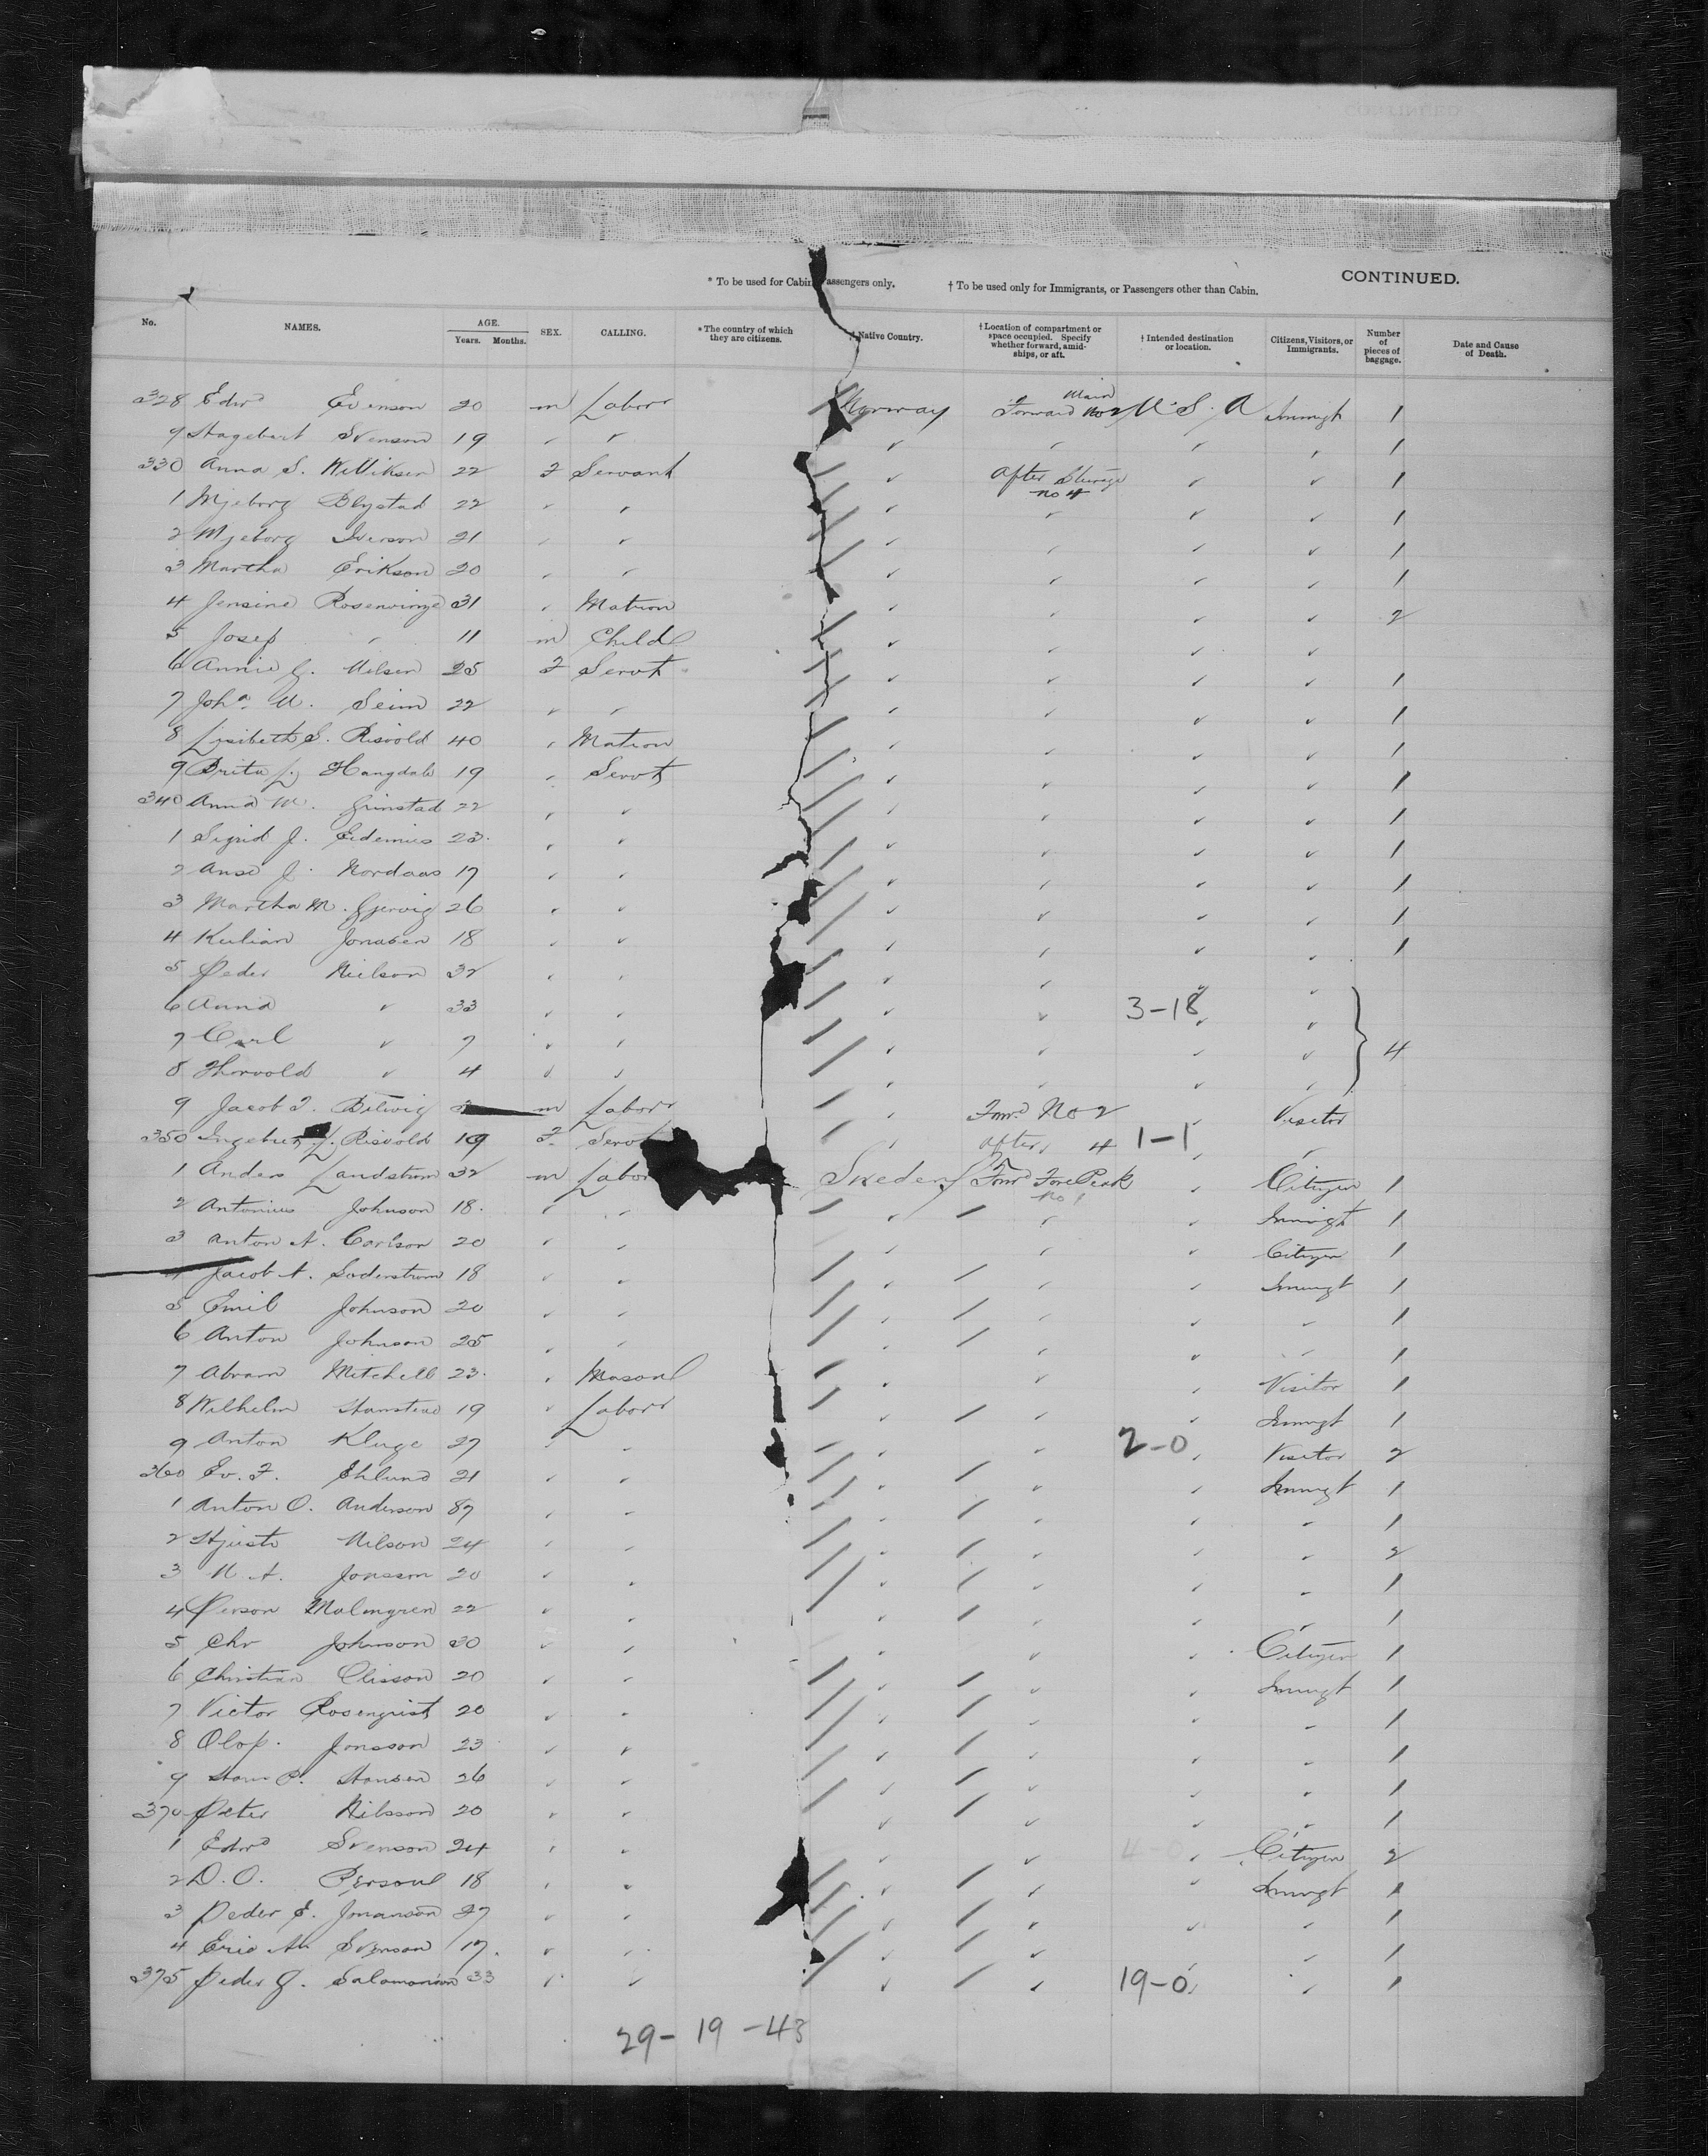 CONTINUED.
* To be used for Cabin Passengers only. † To be used only for Immigrants, or Passengers other than Cabin.
No. NAMES. AGE. Years. Months. SEX. CALLING. * The country of which they are citizens. † Native Country. † Location of compartment or space occupied. Specify whether forward, amidships, or aft. † Intended destination or location. Citizens, Visitors, or Immigrants. Number of pieces of baggage. Date and Cause of Death.
328 Edwd Evenson 20 m Labor Norway Forward Main No 2 U.S.A Immigt 1
9 Svenson 19 ✓ ✓ ✓ ✓ ✓ ✓ 1
330 Anna S. 22 F Servant ✓ After Steerage No 4 ✓ ✓ 1
1 Mjeborg Blystad 22 ✓ ✓ ✓ ✓ ✓ 1
2 Mjeborg Iverson 21 ✓ ✓ ✓ ✓ ✓ ✓ 1
3 Martha Erikson 20 ✓ ✓ ✓ ✓ ✓ ✓ 1
4 Jensine Rosenvinge 31 ✓ Matron ✓ ✓ ✓ ✓ 2
5 Josef ✓ 11 m Child ✓ ✓ ✓ ✓
6 Annie G. Nilsen 25 F Servt ✓ ✓ ✓ ✓ 1
7 Joha N. Seim 22 ✓ ✓ ✓ ✓ ✓ ✓ 1
8 Lisibeth S. Risvold 40 ✓ Matron ✓ ✓ ✓ 1
9 Brita L. Hangdale 19 ✓ Servt ✓ ✓ ✓ ✓ 1
340 Anna M. Grinstad 22 ✓ ✓ ✓ ✓ ✓ 1
1 Sigrid J. 23 ✓ ✓ ✓ ✓ ✓ ✓ 1
2 Anse J. Nordaas 17 ✓ ✓ ✓ ✓ ✓ ✓ 1
3 Martha M. Gjervig 26 ✓ ✓ ✓ ✓ ✓ ✓ 1
4 Kulian Jonasen 18 ✓ ✓ ✓ ✓ ✓ ✓ 1
5 Peder Nielson 32 ✓ ✓ ✓ ✓ ✓ ✓
6 Anna ✓ 33 ✓ ✓ ✓ ✓ 3-18 ✓ ✓
7 Carl ✓ 7 ✓ ✓ ✓ ✓ ✓ ✓ 4
8 Thorvold ✓ 4 ✓ ✓ ✓ ✓ ✓ ✓
9 Jacob T. m Labor ✓ Forwd No 2 Visitor
350 Risvold 19 F Servt ✓ After 4 1-1 ✓ ✓
1 Anders Landstrom 32 m Labor Sweden Forwd Fore Peak No 1 ✓ Citizen 1
2 Antonius Johnson 18 ✓ ✓ ✓ ✓ ✓ Immigt 1
3 Anton A. Carlson 20 ✓ ✓ ✓ ✓ Citizen 1
4 Jacob A. Soderstrom 18 ✓ ✓ ✓ ✓ ✓ Immigt 1
5 Emil Johnson 20 ✓ ✓ ✓ ✓ ✓ 1
6 Anton Johnson 25 ✓ ✓ ✓ ✓ ✓ ✓ 1
7 Abram Mitchell 23 ✓ Mason ✓ ✓ ✓ Visitor 1
8 Wilhelm 19 ✓ Labor ✓ ✓ ✓ Immigt 1
9 Anton Kluge 27 ✓ ✓ ✓ ✓ 2-0 ✓ Visitor 2
360 Ev. F. Ehlund 21 ✓ ✓ ✓ ✓ ✓ Immigt 1
1 Anton O. Anderson 37 ✓ ✓ ✓ ✓ ✓ ✓ 1
2 Nilson 24 ✓ ✓ ✓ ✓ ✓ ✓ 2
3 N. A. Jonsson 20 ✓ ✓ ✓ ✓ ✓ ✓ 1
4 Person Malmgren 22 ✓ ✓ ✓ ✓ ✓ ✓ 1
5 Chr Johnson 30 ✓ ✓ ✓ ✓ Citizen 1
6 Christian Olisson 20 ✓ ✓ ✓ ✓ ✓ Immigt 1
7 Victor Rosenqvist 20 ✓ ✓ ✓ ✓ ✓ ✓ 1
8 Olof Jonsson 23 ✓ ✓ ✓ ✓ ✓ ✓ 1
9 Hans P. Hansen 26 ✓ ✓ ✓ ✓ ✓ ✓ 1
370 Peter Nilsson 20 ✓ ✓ ✓ ✓ ✓ ✓ 1
1 Edwd Svenson 24 ✓ ✓ ✓ ✓ 4-0 ✓ Citizen 2
2 D. O. Person 18 ✓ ✓ ✓ ✓ ✓ Immigt 1
3 Peder E. Jonanson 27 ✓ ✓ ✓ ✓ ✓ ✓ 1
4 Eric An Svenson 17 ✓ ✓ ✓ ✓ ✓ ✓ 1
375 Peder J. Salomonson 33 ✓ ✓ ✓ ✓ 19-0 ✓ ✓ 1
29- 19 -43